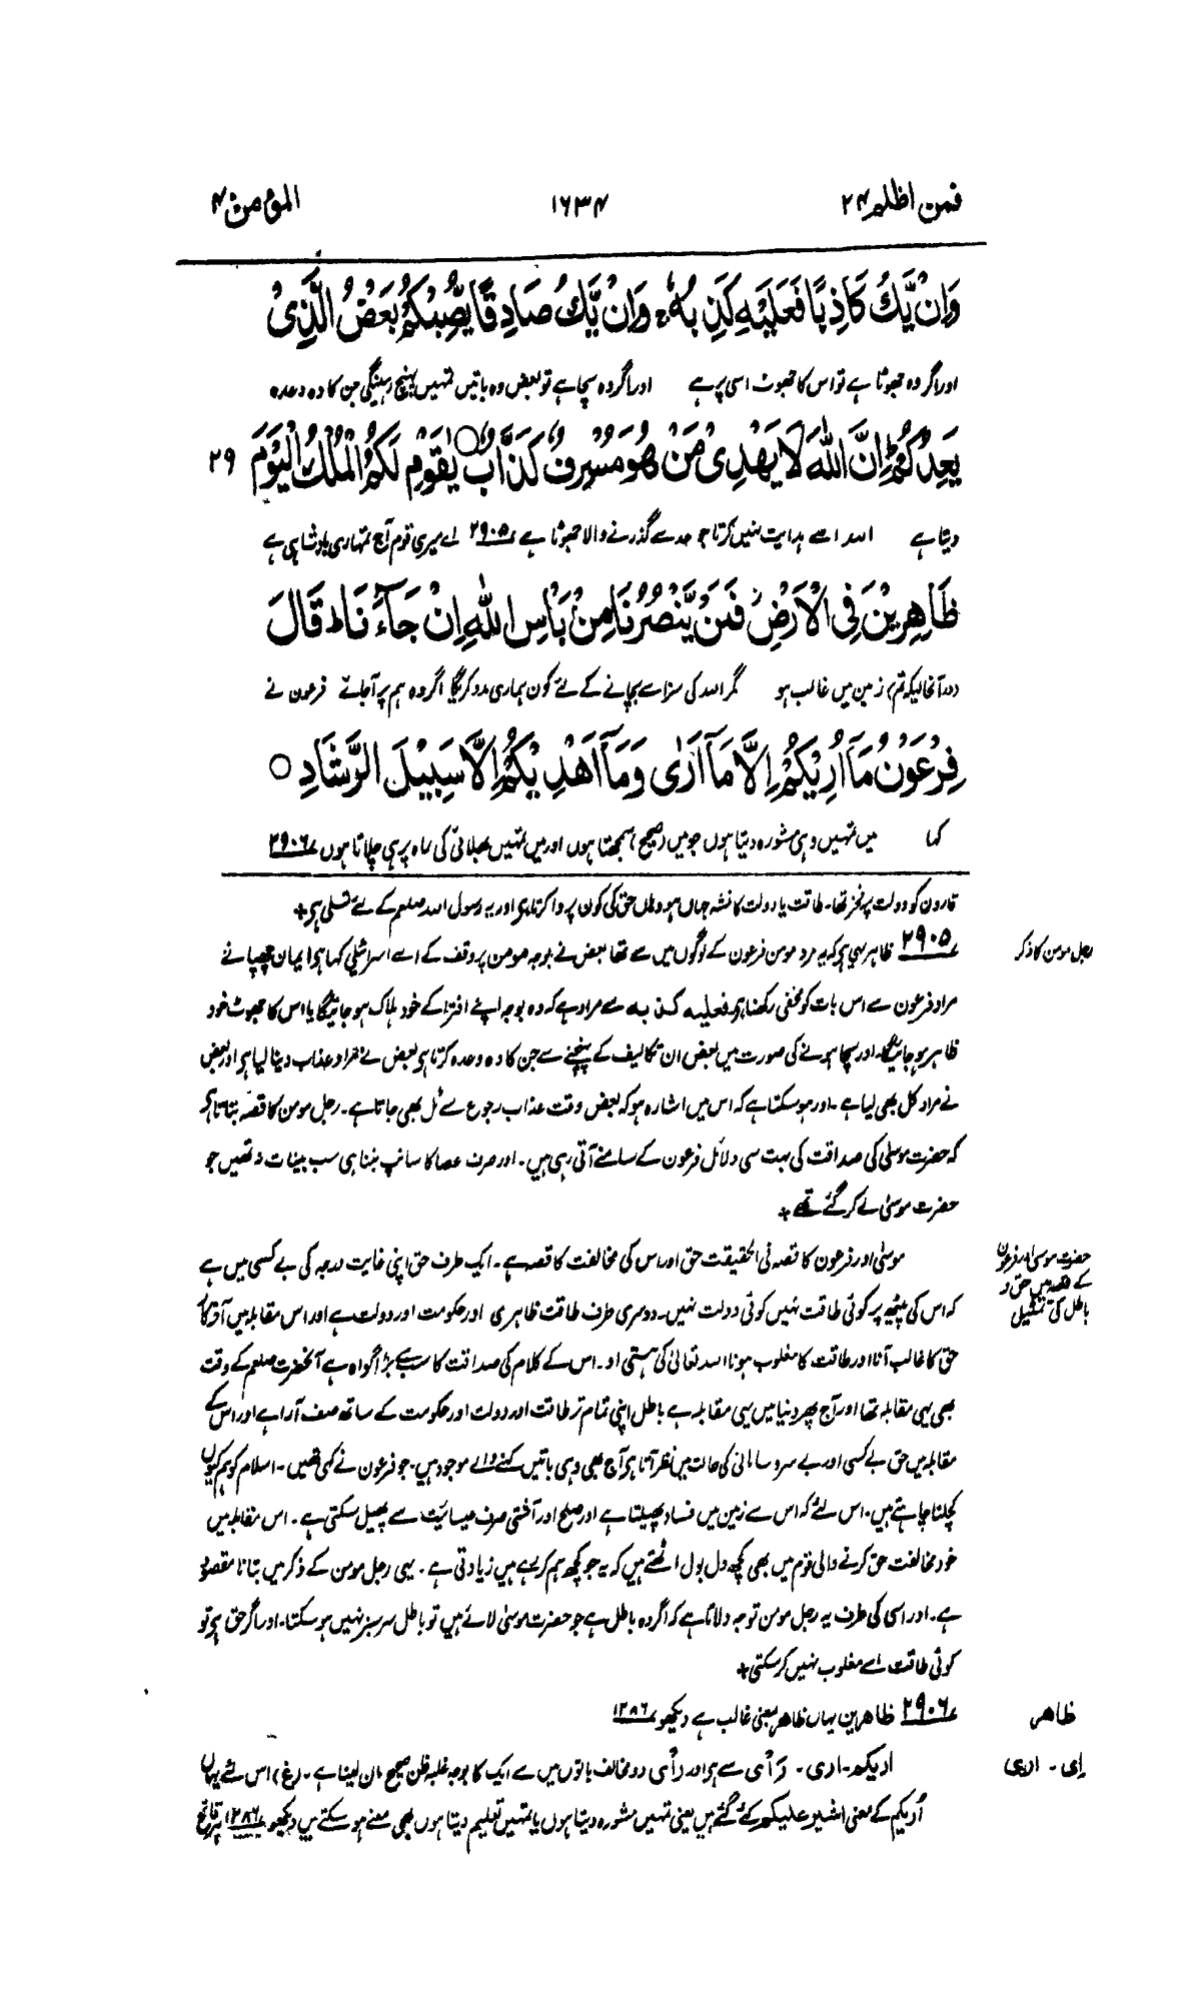 فمن اظلم ۲۴
۱۶۳۴
المؤمن ۴۰
وَاِنْ يَّكُ كَاذِبًا فَعَلَيْهِ كَذِبُهٗ ۚ وَاِنْ يَّكُ صَادِقًا يُّصِبْكُمْ بَعْضُ الَّذِىْ
اور اگر وہ جھوٹا ہے تو اس کا جھوٹ اسی پر ہے اور اگر وہ سچا ہے تو بعض وہ باتیں تمہیں پہنچ رہینگی جن کا وہ وعدہ
يَعِدُكُمْ ؕ اِنَّ اللّٰهَ لَا يَهْدِىْ مَنْ هُوَ مُسْرِفٌ كَذَّابٌ ○ يٰقَوْمِ لَكُمُ الْمُلْكُ الْيَوْمَ ۲۹
دیتا ہے اللہ اسے ہدایت نہیں کرتا جو حد سے گذرنے والا جھوٹا ہے ۲۹۰۵ اے میری قوم آج تمہاری بادشاہی ہے
ظَاهِرِيْنَ فِى الْاَرْضِ ۫ فَمَنْ يَّنْصُرُنَا مِنْۢ بَاْسِ اللّٰهِ اِنْ جَآءَنَا ؕ قَالَ
درآنحالیکہ تم زمین میں غالب ہو مگر اللہ کی سزا سے بچانے کے لئے کون ہماری مدد کریگا اگر وہ ہم پر آجائے فرعون نے
فِرْعَوْنُ مَآ اُرِيْكُمْ اِلَّا مَآ اَرٰى وَمَآ اَهْدِيْكُمْ اِلَّا سَبِيْلَ الرَّشَادِ ○
کہا میں تمہیں وہی مشورہ دیتا ہوں جو میں (صحیح) سمجھتا ہوں اور میں تمہیں بھلائی کی راہ پر ہی چلاتا ہوں ۲۹۰۶
قارون کو دولت پر فخر تھا۔ طاقت یا دولت کا نشہ جہاں ہو وہاں حق کی کون پروا کرتا ہے اور یہ رسول اللہ صلعم کے لئے تسلی ہے+
رجل مومن کا ذکر
۲۹۰۵ ظاہر یہی ہے کہ یہ مرد مومن فرعون کے لوگوں میں سے تھا بعض نے بوجہ مومن پر وقف کے اسے اسرائیلی کہا ہے ایمان چھپانے سے
مراد فرعون سے اس بات کو مخفی رکھنا ہے فعلیہ کذبہ سے مراد ہے کہ وہ بوجہ اپنے افترا کے خود ہلاک ہو جائیگا یا اس کا جھوٹ خود
ظاہر ہو جائیگا۔ اور سچا ہونے کی صورت میں بعض ان تکالیف کے پہنچنے سے جن کا وہ وعدہ کرتا ہے بعض نے مراد عذاب دینا لیا ہے اور بعض
نے مراد کل بھی لیا ہے۔ اور ہو سکتا ہے کہ اس میں اشارہ ہو کہ بعض وقت عذاب رجوع سے ٹل بھی جاتا ہے۔ رجل مومن کا قصہ بتاتا ہے
کہ حضرت موسیٰ کی صداقت کی بہت سی دلائل فرعون کے سامنے آتی رہی ہیں۔ اور صرف عصا کا سانپ بننا ہی سب بینات نہ تھیں جو
حضرت موسیٰ لے کر گئے تھے+
حضرت موسیٰ اور فرعون
کے قصہ میں حق و
باطل کی تمثیل
موسیٰ اور فرعون کا قصہ فی الحقیقت حق اور اس کی مخالفت کا قصہ ہے۔ ایک طرف حق اپنی غایت درجہ کی بے کسی میں ہے
کہ اس کی پیٹھ پر کوئی طاقت نہیں کوئی دولت نہیں۔ دوسری طرف طاقت ظاہری اور حکومت اور دولت ہے اور اس مقابلہ میں آخر کار
حق کا غالب آنا اور طاقت کا مغلوب ہونا اللہ تعالیٰ کی ہستی اور اس کے کلام کی صداقت کا سب سے بڑا گواہ ہے آنحضرت صلعم کے وقت
بھی یہی مقابلہ تھا اور آج پھر دنیا میں یہی مقابلہ ہے باطل اپنی تمام تر طاقت اور دولت اور حکومت کے ساتھ صف آرا ہے اور اس کے
مقابلہ میں حق بے کسی اور بے سرو سامانی کی حالت میں نظر آتا ہے آج بھی وہی باتیں کہنے والے موجود ہیں۔ جو فرعون نے کہی تھیں۔ اسلام کو ہم کیوں
کچلنا چاہتے ہیں۔ اس لئے کہ اس سے زمین میں فساد پھیلتا ہے اور صلح اور آشتی صرف عیسائیت سے پھیل سکتی ہے۔ اس مقابلہ میں
خود مخالفت حق کرنے والی قوم میں بھی کچھ دل بول اٹھتے ہیں کہ یہ جو کچھ ہم کر رہے ہیں زیادتی ہے۔ یہی رجل مومن کے ذکر میں بتانا مقصود
ہے۔ اور اسی کی طرف یہ رجل مومن توجہ دلاتا ہے کہ اگر وہ باطل ہے جو حضرت موسیٰ لائے ہیں تو باطل سرسبز نہیں ہو سکتا۔ اور اگر حق ہے تو
کوئی طاقت اسے مغلوب نہیں کر سکتی+
ظاھر
۲۹۰۶ ظاھرین یہاں ظاھر بمعنی غالب ہے دیکھو ۱۲۸۶
رای۔ اری
اریکم۔ اری۔ رأی سے ہے اور رأی دو مخالف باتوں میں سے ایک کا بوجہ غلبہ ظن صحیح مان لینا ہے۔ (غ) اس لئے یہاں
اُریکم کے معنی اشیر علیکم کئے گئے ہیں یعنی تمہیں مشورہ دیتا ہوں یا تمہیں تعلیم دیتا ہوں بھی معنے ہو سکتے ہیں دیکھو ۱۲۸۶